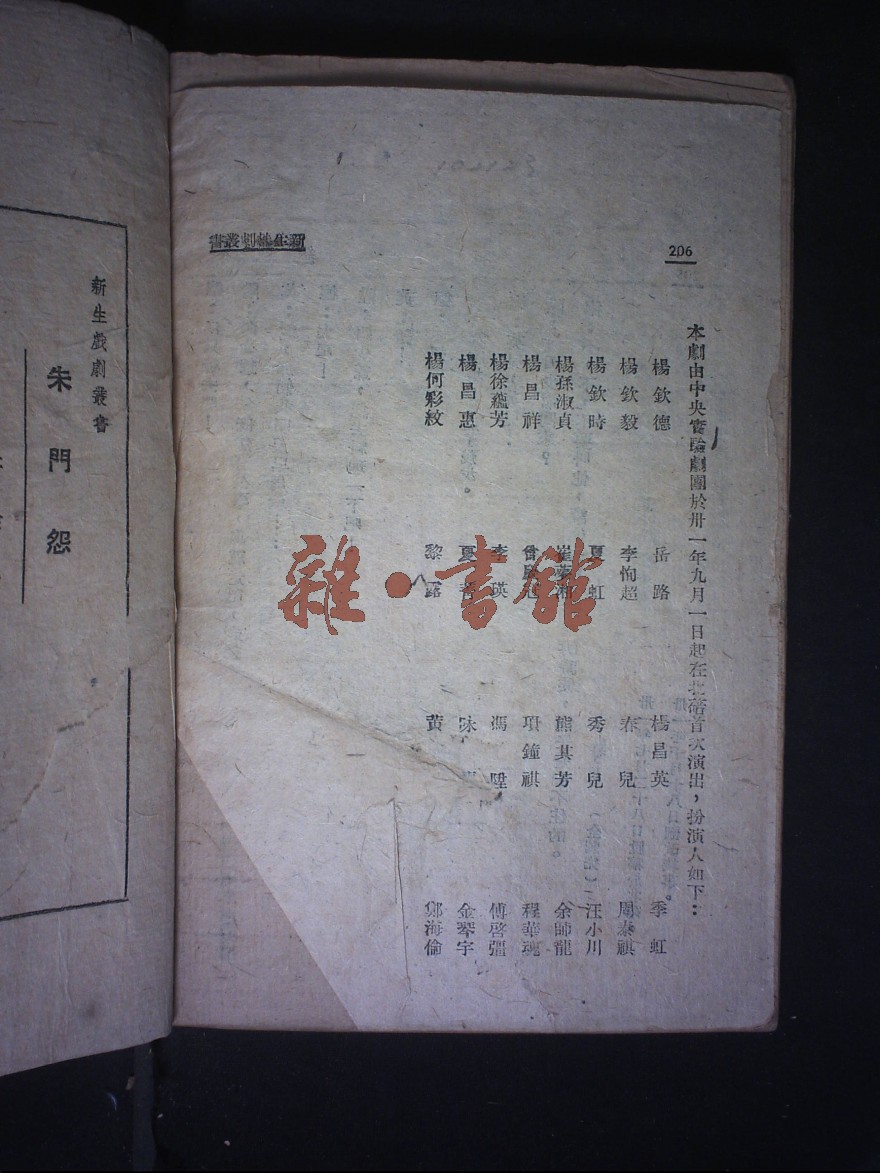 206
新生戲劇叢書
本劇由中央實驗劇團於卅一年九月一日起在北碚首次演出，扮演人如下：
楊欽德 岳路 楊昌英 季虹
楊欽毅 李恂超 春兒 周泰祺
楊欽時 夏虹 秀兒 汪小川
楊孫淑貞 熊其芳 余師龍
楊昌祥 項鐘祺 程華魂
楊徐蘊芳 李瑛 馮陞 傅啓彊
楊昌惠 夏 金琴宇
楊何彩紋 黎露 黃 鄭海倫
新生戲劇叢書
朱門怨
雜·書館